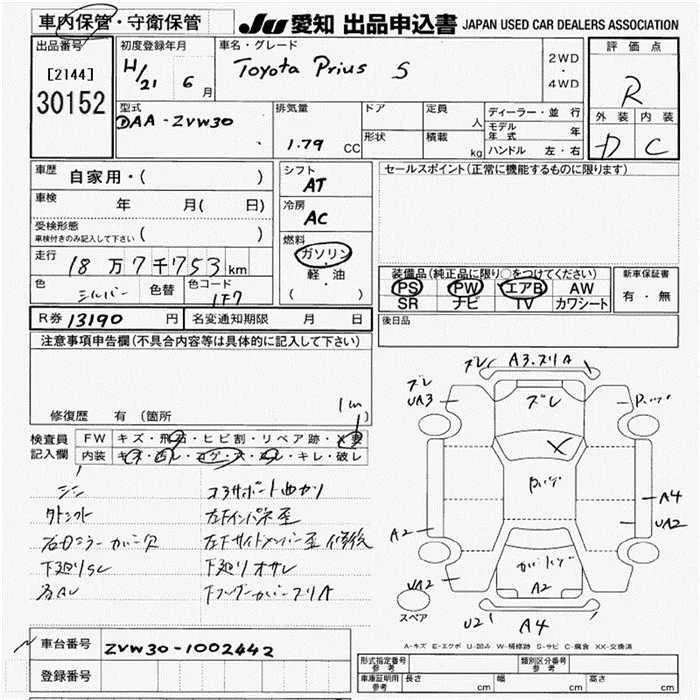 車内保管・守衛保管
JU 愛知 出品申込書 JAPAN USED CAR DEALERS ASSOCIATION
出品番号
[2144]
30152
初度登録年月
H/21 6 月
車名・グレード
Toyota Prius S
2WD
・
4WD
評価点
R
外装 内装
D C
型式
DAA-ZVW30
排気量
1.79 CC
ドア
形状
定員
人
積載
kg
ディーラー・並行
モデル年式 年
ハンドル 左・右
車歴 自家用・( )
車検 年 月( 日)
受検形態
車検付きのみ記入して下さい ( )
走行 18万7千753km
色 シルバー 色替 色コード 1F7
R券 13190 円 名変通知期限 月 日
シフト
AT
冷房
AC
燃料
ガソリン
・
軽・油
( )
セールスポイント(正常に機能するものに限ります)
装備品(純正品に限り○をつけてください)
PS PW エアB AW
SR ナビ TV カワシート
新車保証書
有・無
後日品
注意事項申告欄(不具合内容等は具体的に記入して下さい)
修復歴 有(箇所
検査員
記入欄
FW キズ・飛石・ヒビ割・リペア跡・X要
内装
キレ・破レ
ズレ A3.スリA
ズレ
UA3
ズレ
A4
UA2
A2
A2
UA2
U2
A4
スペア
コアサポート曲がり
左下インパネ歪
左下サイドメンバー歪 修後
下廻りサビ
A-キズ E-エクボ U-凹み W-補修跡 S-サビ C-腐食 XX-交換済
車台番号 ZVW30-1002442
登録番号
形式指定番号
参考
類別区分番号
参考
車庫証明用
参考
長さ cm 幅 cm 高さ cm